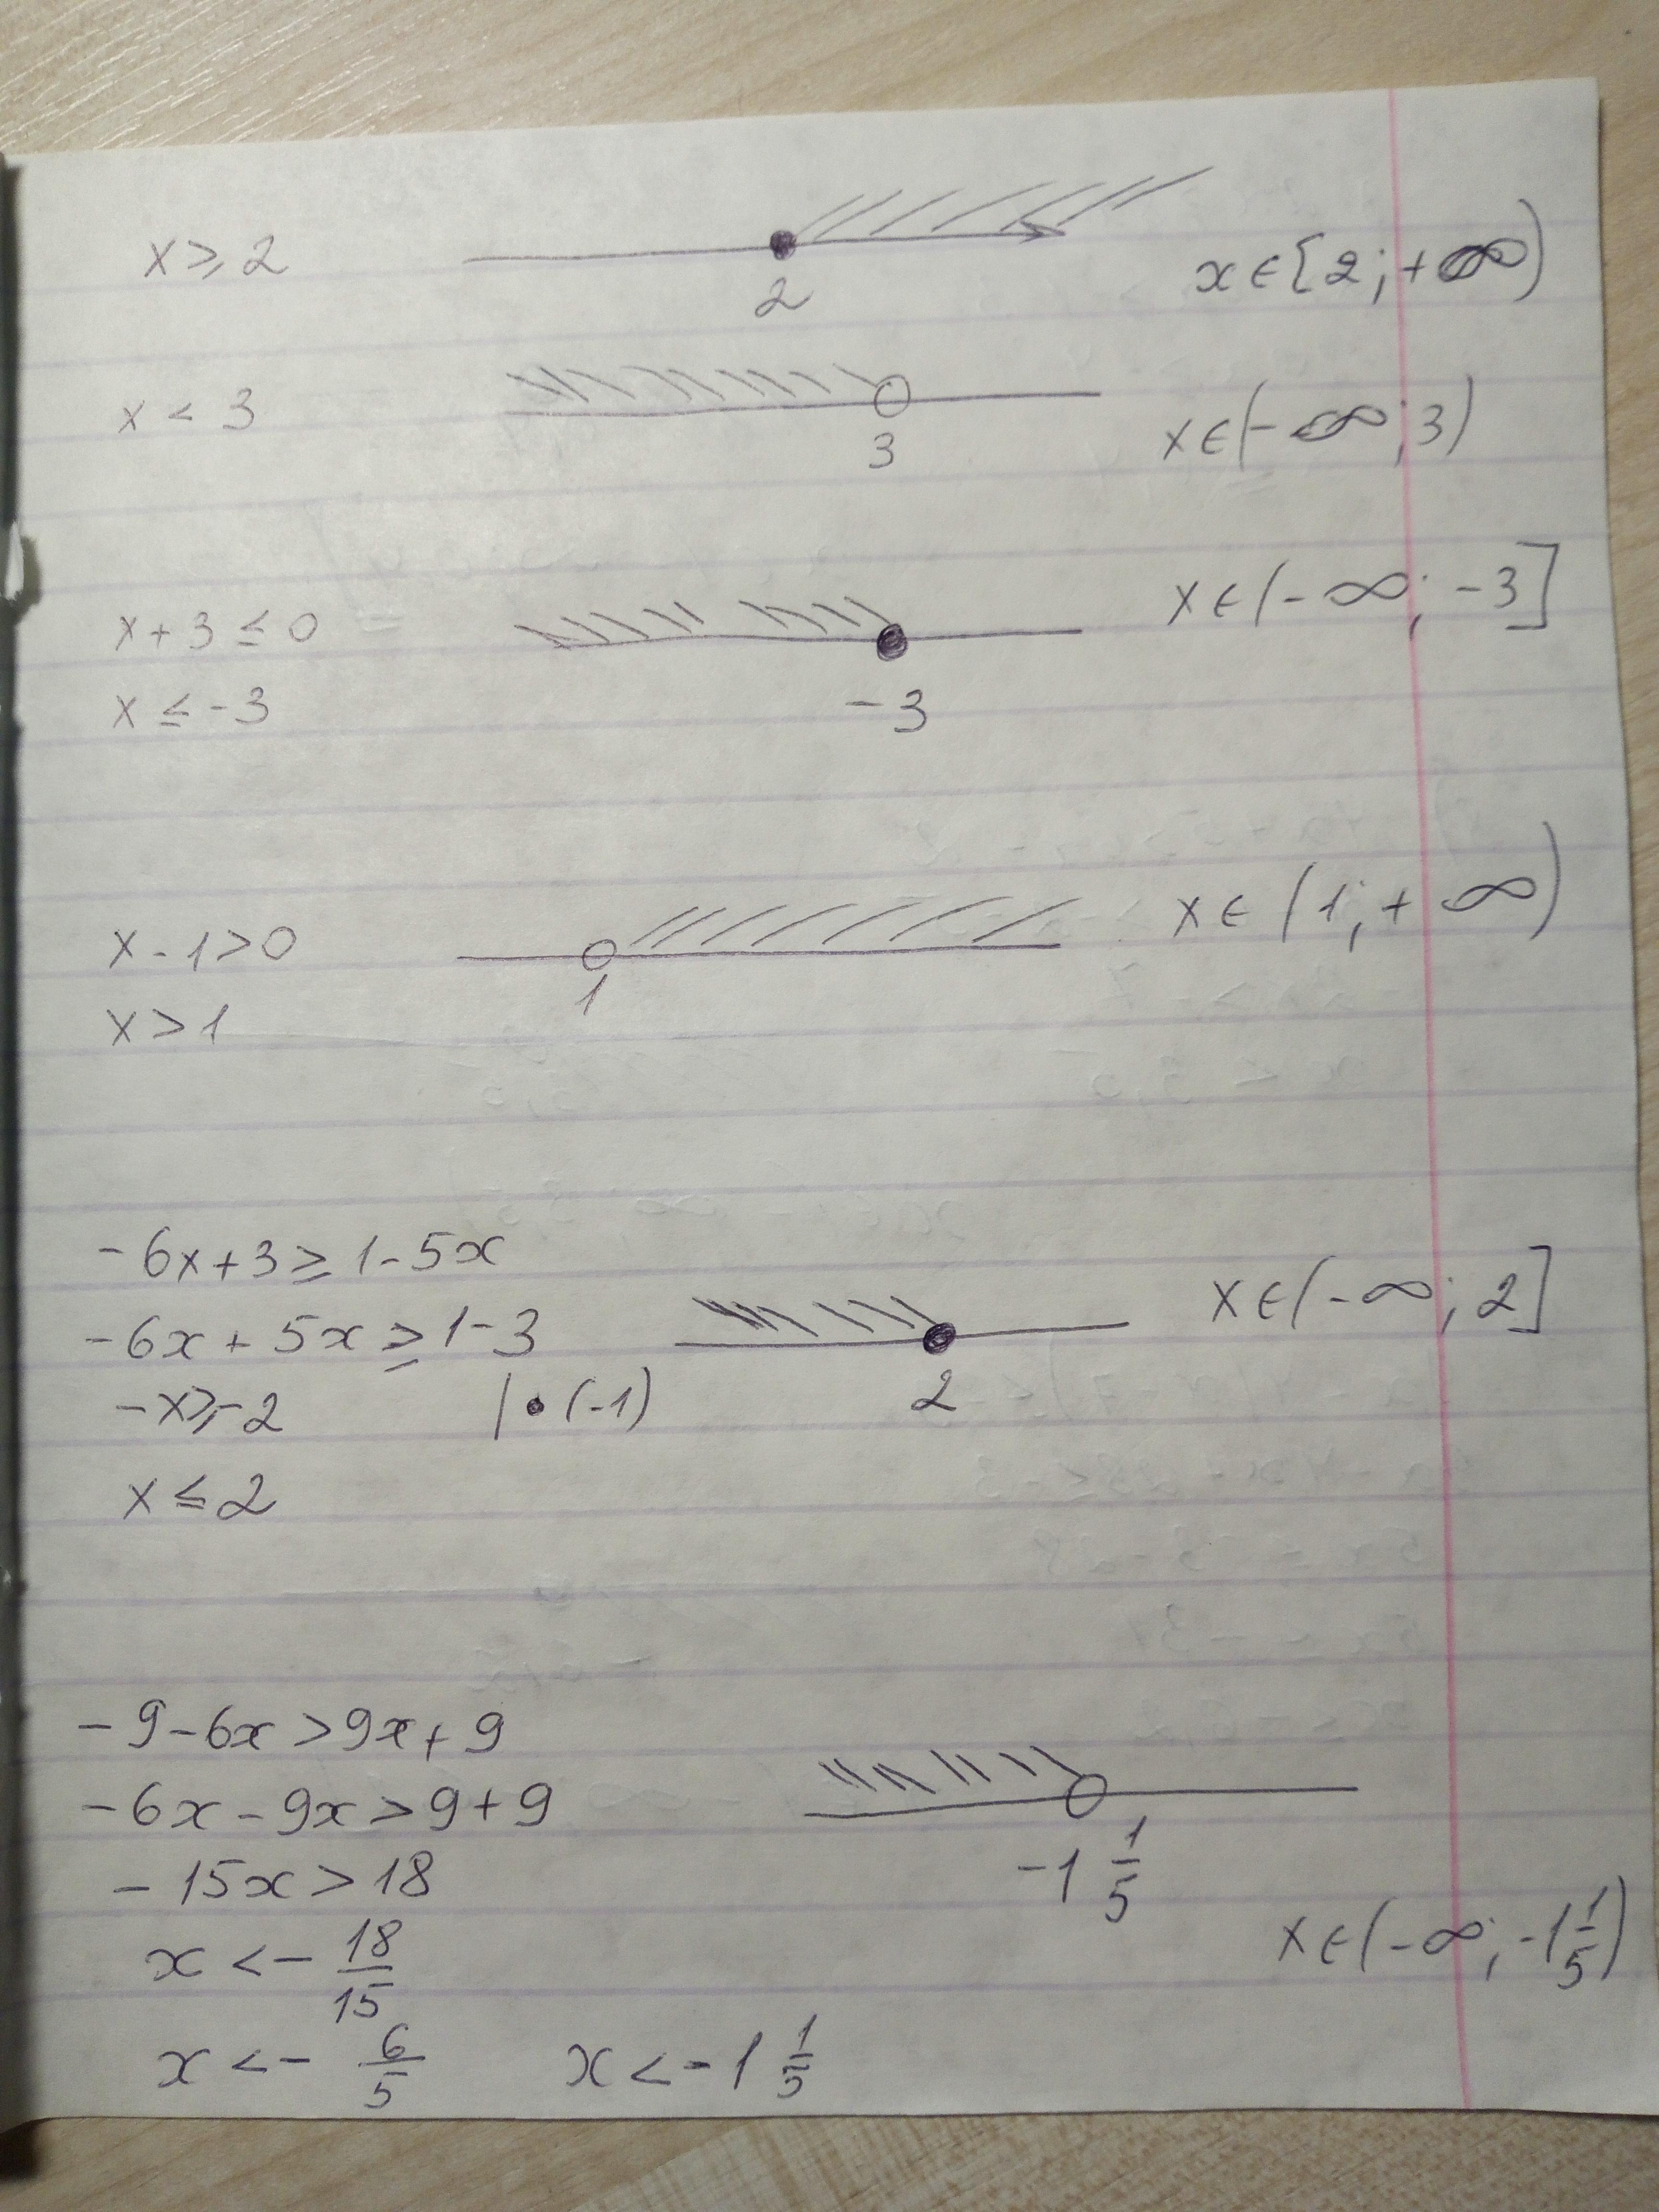 x ≥ 2
2
x ∈ [2; +∞)
x < 3
3
x ∈ (-∞; 3)
x + 3 ≤ 0
x ≤ -3
-3
x ∈ (-∞; -3]
x - 1 > 0
x > 1
1
x ∈ (1; +∞)
-6x + 3 ≥ 1 - 5x
-6x + 5x ≥ 1 - 3
-x ≥ -2 | • (-1)
x ≤ 2
2
x ∈ (-∞; 2]
-9 - 6x > 9x + 9
-6x - 9x > 9 + 9
-15x > 18
x < - 18/15
x < - 6/5 x < -1 1/5
-1 1/5
x ∈ (-∞; -1 1/5)